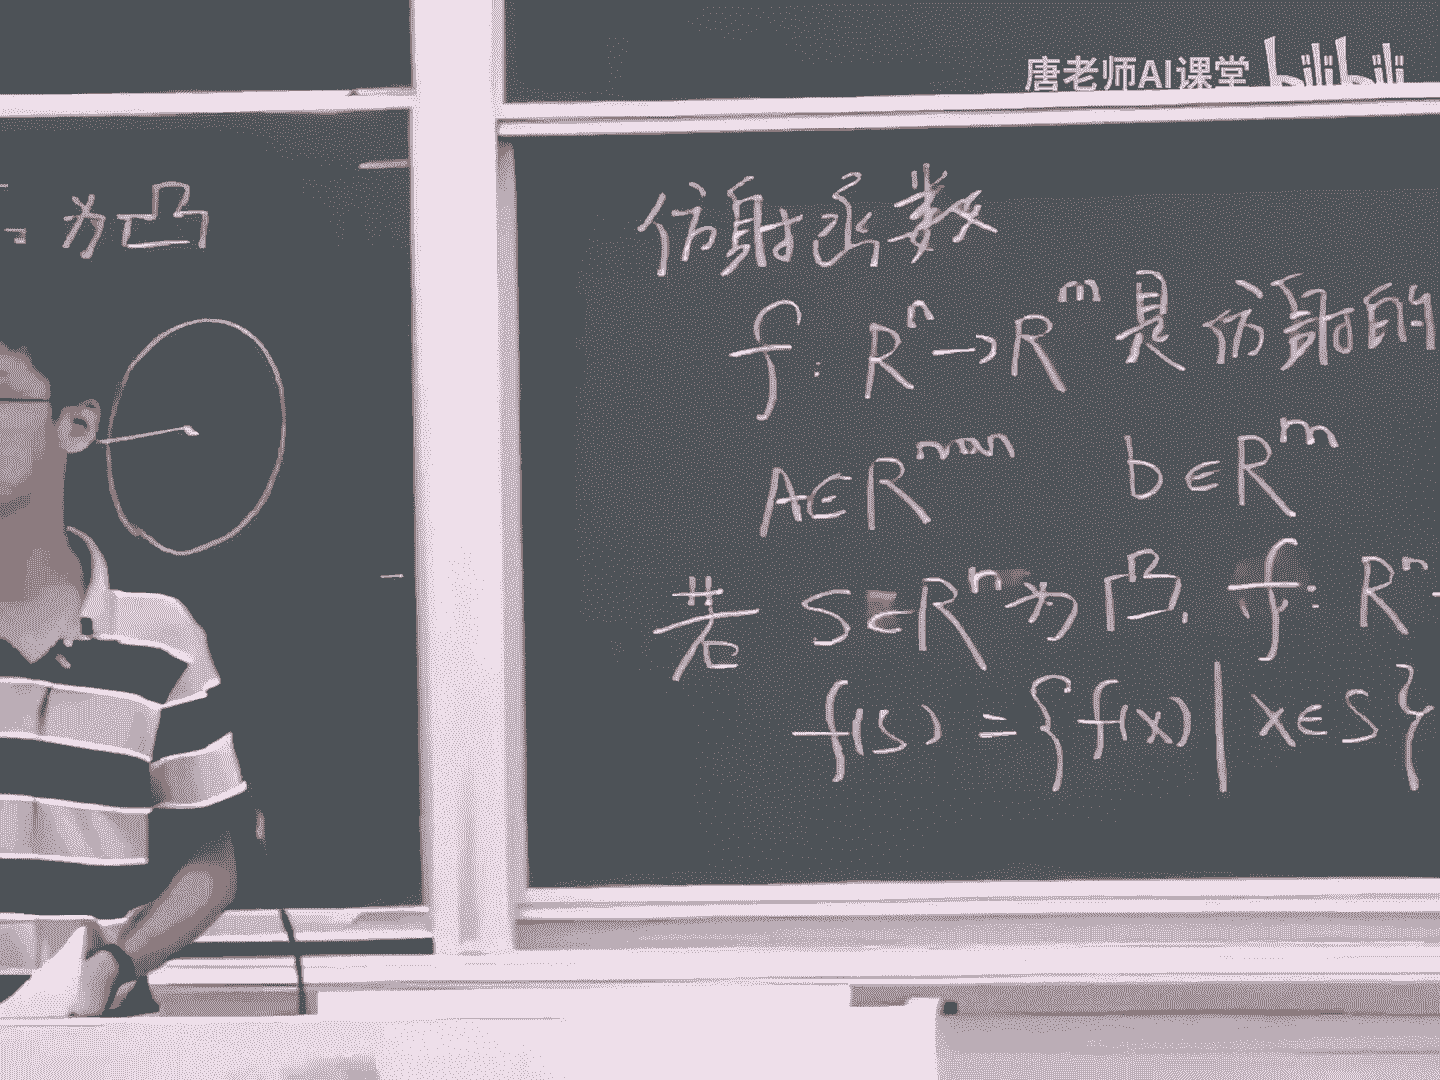 唐老师AI课堂 bilibili
为凸
仿射函数
f: Rⁿ→Rᵐ 是仿射的
A∈Rᵐˣⁿ b∈Rᵐ
若 S∈Rⁿ为凸, f: Rⁿ
f(S) = {f(x) | x∈S}